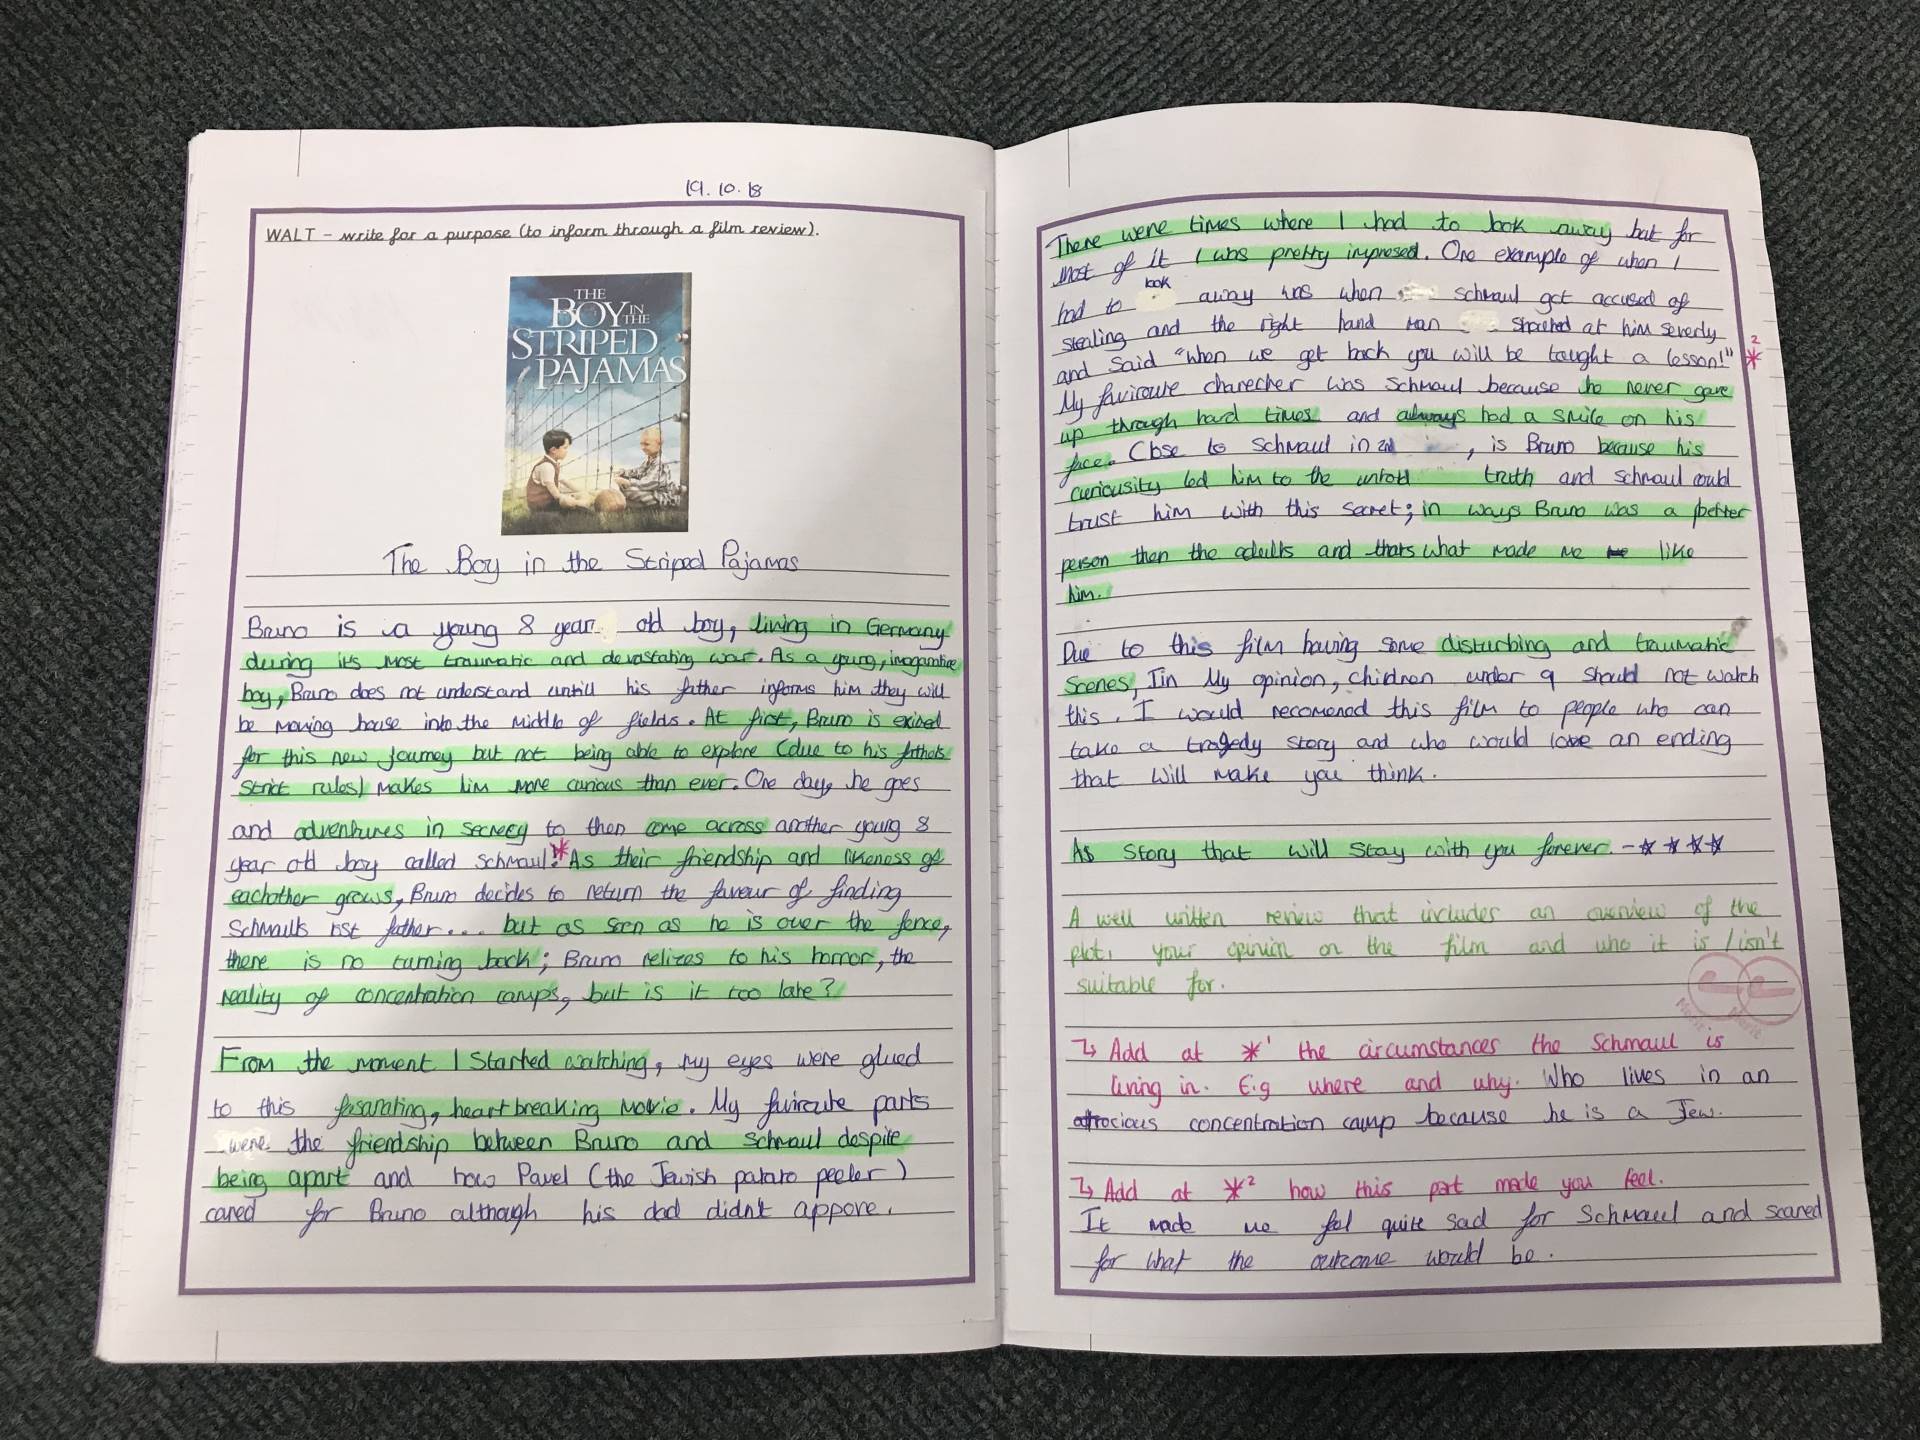 19.10.18
WALT - write for a purpose (to inform through a film review).
THE
BOY IN
THE
STRIPED
PAJAMAS
The Boy in the Striped Pajamas
Bruno is a young 8 year old boy, living in Germany
during its most traumatic and devastating war. As a young, imaganitive
boy, Bruno does not understand untill his father informs him they will
be moving house into the middle of fields. At first, Bruno is exised
for this new journey but not being able to explore (due to his fathers
strict rules) makes him more curious than ever. One day, he goes
and adventures in secrecy to then come across another young 8
year old boy called Schmaul. *1 As their friendship and likeness of
eachother grows, Bruno decides to return the favour of finding
Schmauls lost father... but as soon as he is over the fence,
there is no turning back; Bruno relizes to his horror, the
reality of concentration camps, but is it too late?
From the moment I started watching, my eyes were glued
to this fasanating, heartbreaking movie. My faviroute parts
were the friendship between Bruno and Schmaul despite
being apart and how Pavel (the Jewish patato peeler)
cared for Bruno although his dad didn't appore.
There were times where I had to look away but for
most of it I was pretty impresed. One example of when I
had to look away was when Schmaul got accused of
stealing and the right hand man shouted at him severly
and said "when we get back you will be taught a lesson!" *2
My faviroute charecher was Schmaul because he never gave
up through hard times and always had a smile on his
face. Close to Schmaul in 2nd , is Bruno because his
curiousity led him to the untold truth and schmaul could
trust him with this secret; in ways Bruno was a better
person then the adults and thats what made me like
him.
Due to this film having some disturbing and traumatic
scenes, in my opinion, children under 9 should not watch
this. I would recomened this film to people who can
take a tragedy story and who would love an ending
that will make you think.
As story that will stay with you forever. - ★ ★ ★ ★
A well written review that includes an overview of the
plot, your opinion on the film and who it is / isn't
suitable for.
Merit Merit
↳ Add at *1 the circumstances the Schmaul is
living in. E.g where and why. Who lives in an
atrocious concentration camp because he is a Jew.
↳ Add at *2 how this part made you feel.
It made me fel quite sad for Schmaul and scared
for what the outcome would be.